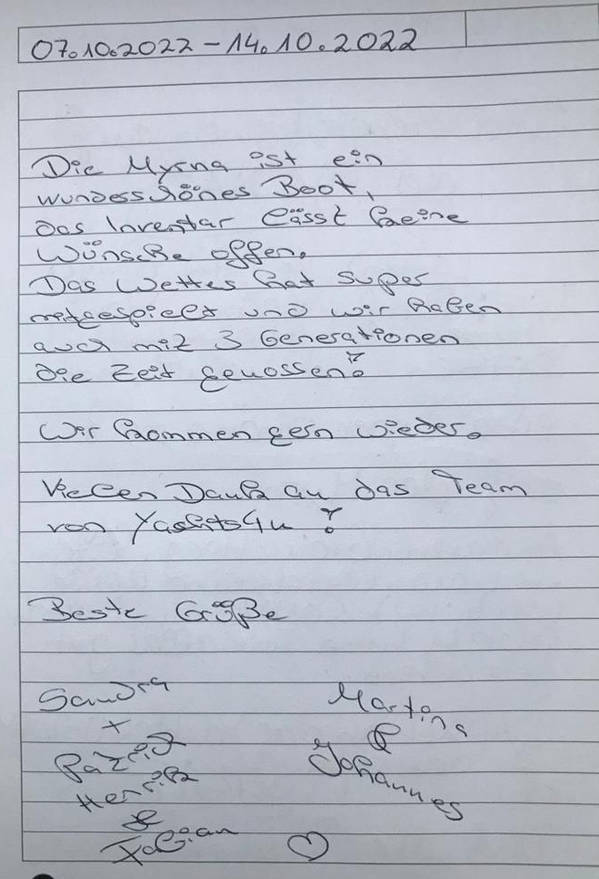 07.10.2022 – 14.10.2022
Die Myrna ist ein
wunderschönes Boot,
das Inventar lässt keine
Wünsche offen.
Das Wetter hat super
mitgespielt und wir haben
auch mit 3 Generationen
die Zeit genossen!
Wir kommen gern wieder.
Vielen Dank an das Team
von Yachts4u !
Beste Grüße
Sandra
+
Patrick
Henrik
&
Fabian
Martina
&
Johannes
♡